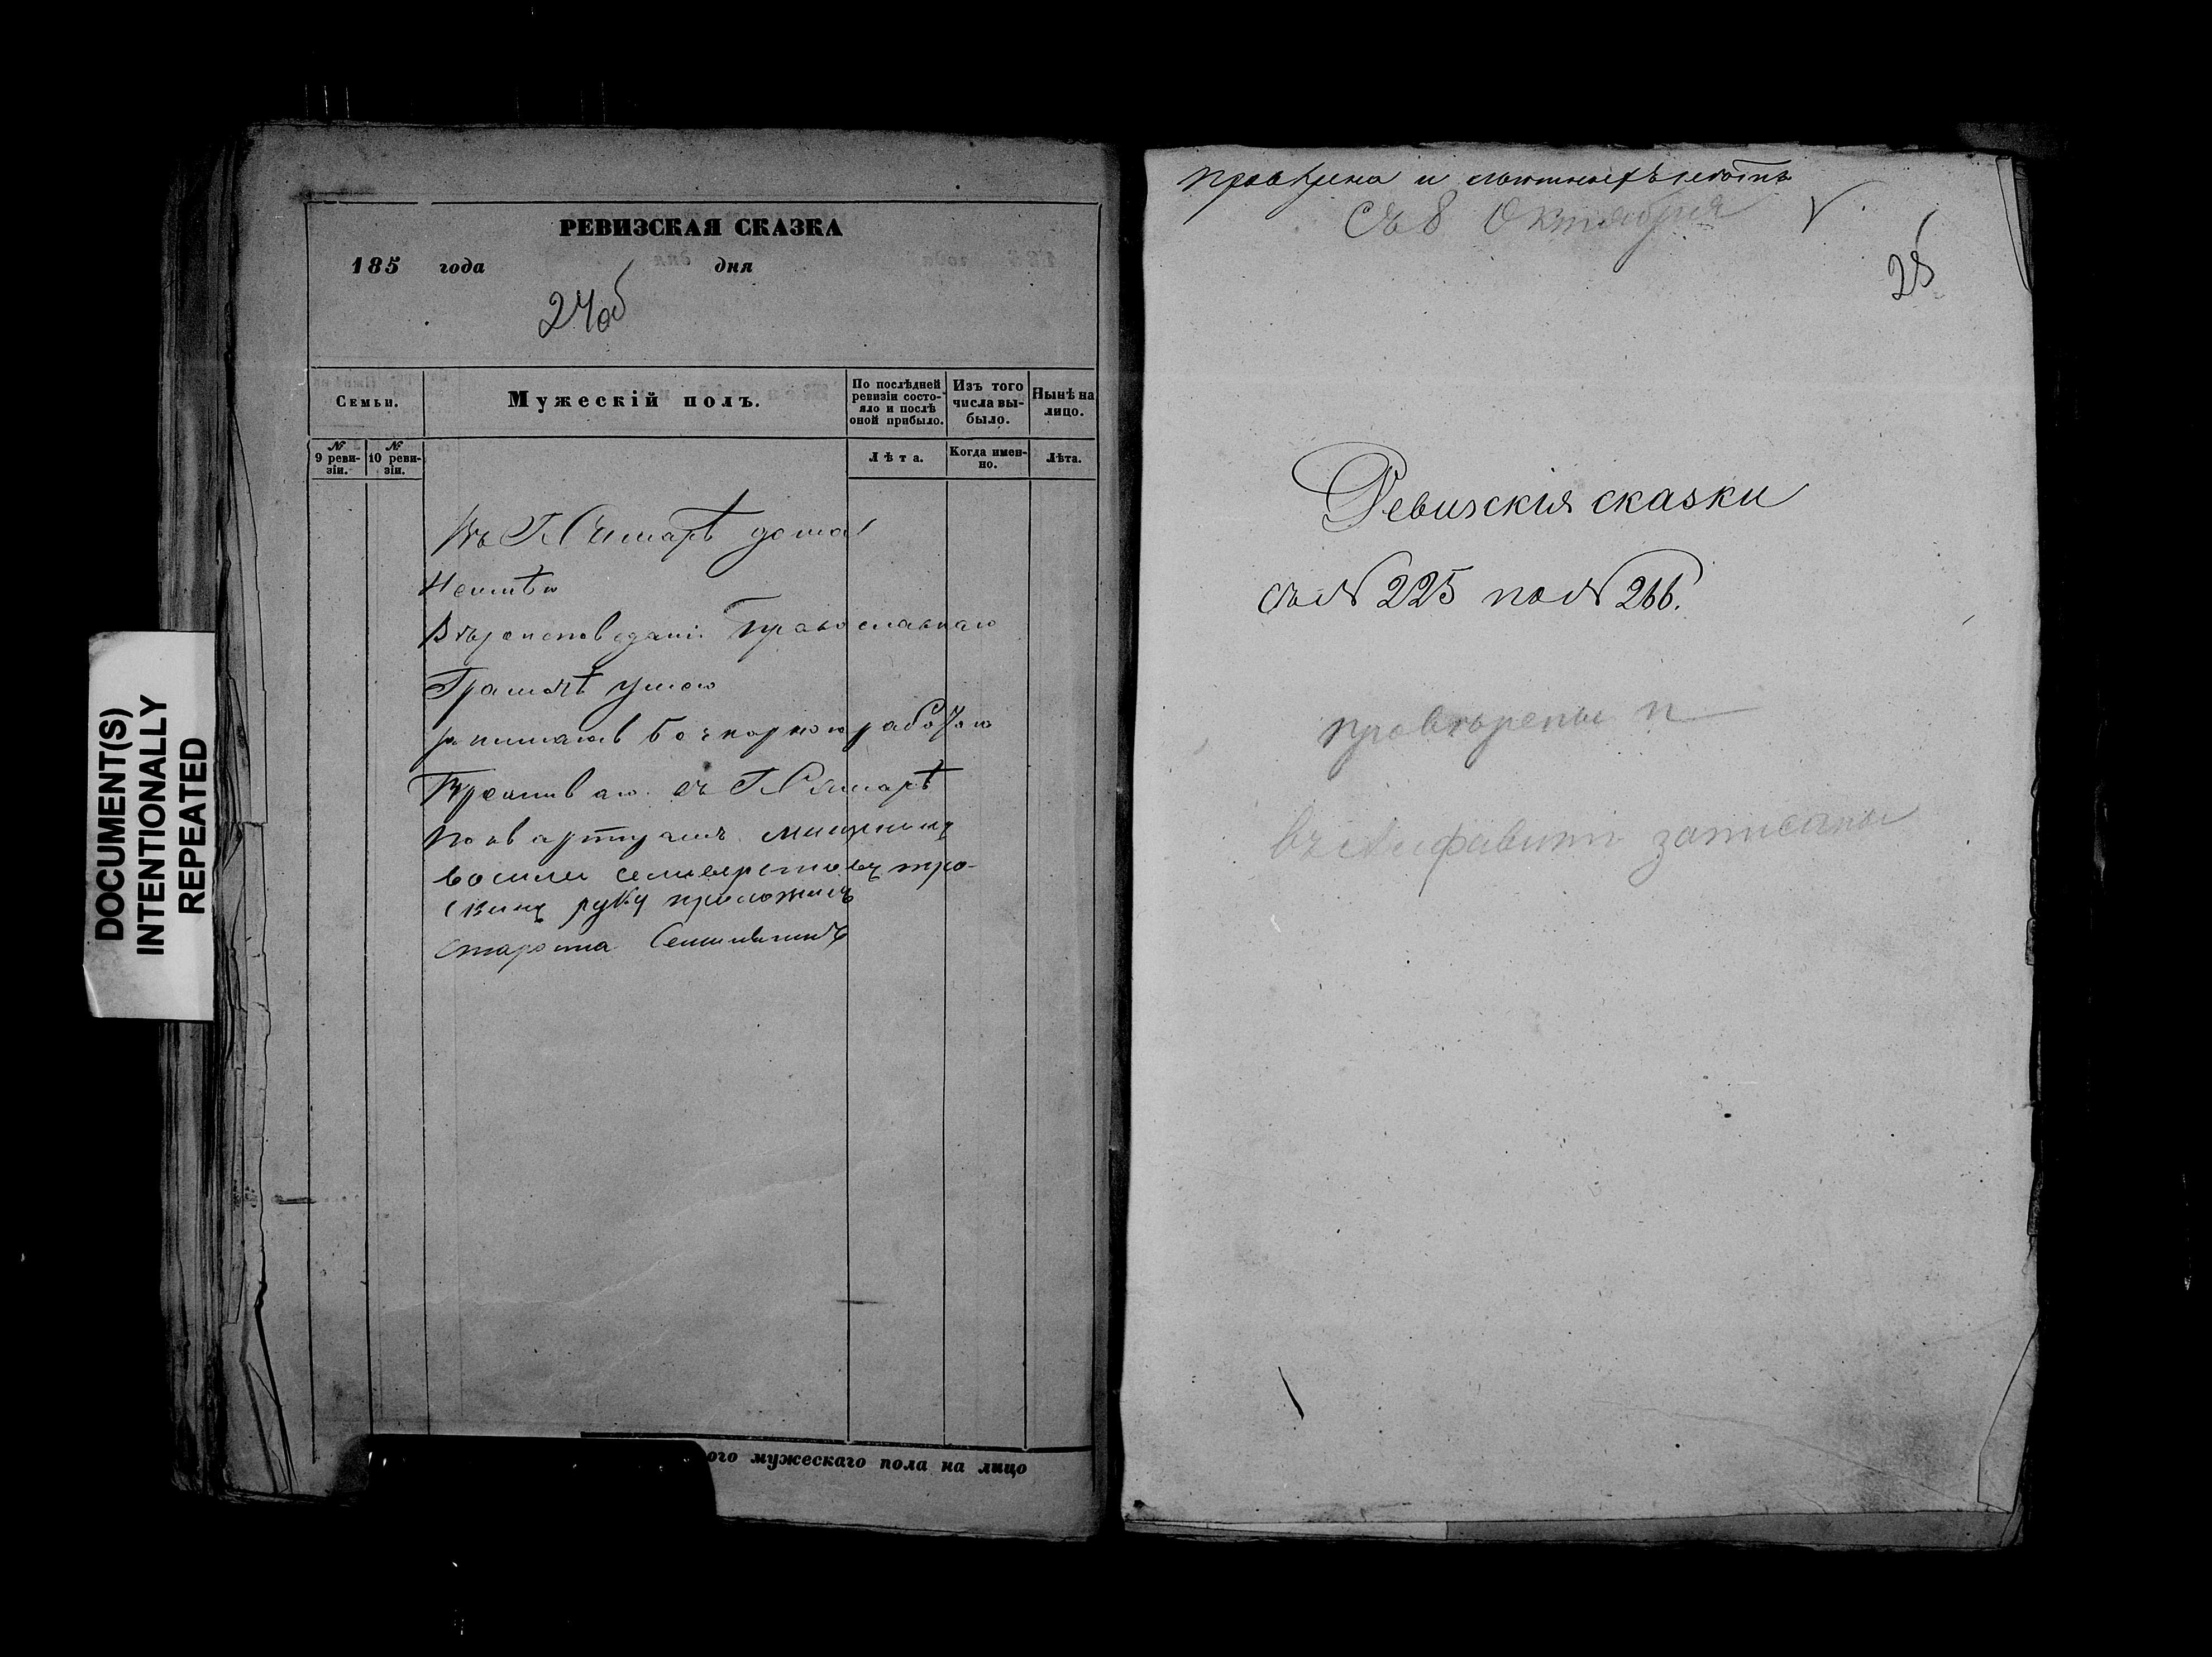 DOCUMENT(S)
INTENTIONALLY
REPEATED
РЕВИЗСКАЯ СКАЗКА
185 года дня
24об
Семьи.
Мужескій полъ.
По послѣдней ревизіи состо-
яло и послѣ
оной прибыло.
Изъ того
числа вы-
было.
Нынѣ на
лицо.
№
9 реви-
зіи.
№
10 реви-
зіи.
Лѣта.
Когда имен-
но.
Лѣта.
Въ Г Самарѣ дома
Неимѣю
Вѣроисповеданія Православнаго
Грамотѣ умею
бочкорною работою
Проживаю въ Г Самарѣ
по квартирамъ мищанинъ
восилей
руку приложилъ
Староста
ого мужескаго пола на лицо
Провѣрена и
Съ 8 Октября
25
Ревизскія сказки
съ № 225 по № 266.
провѣрены
въ Алфавитъ записаны